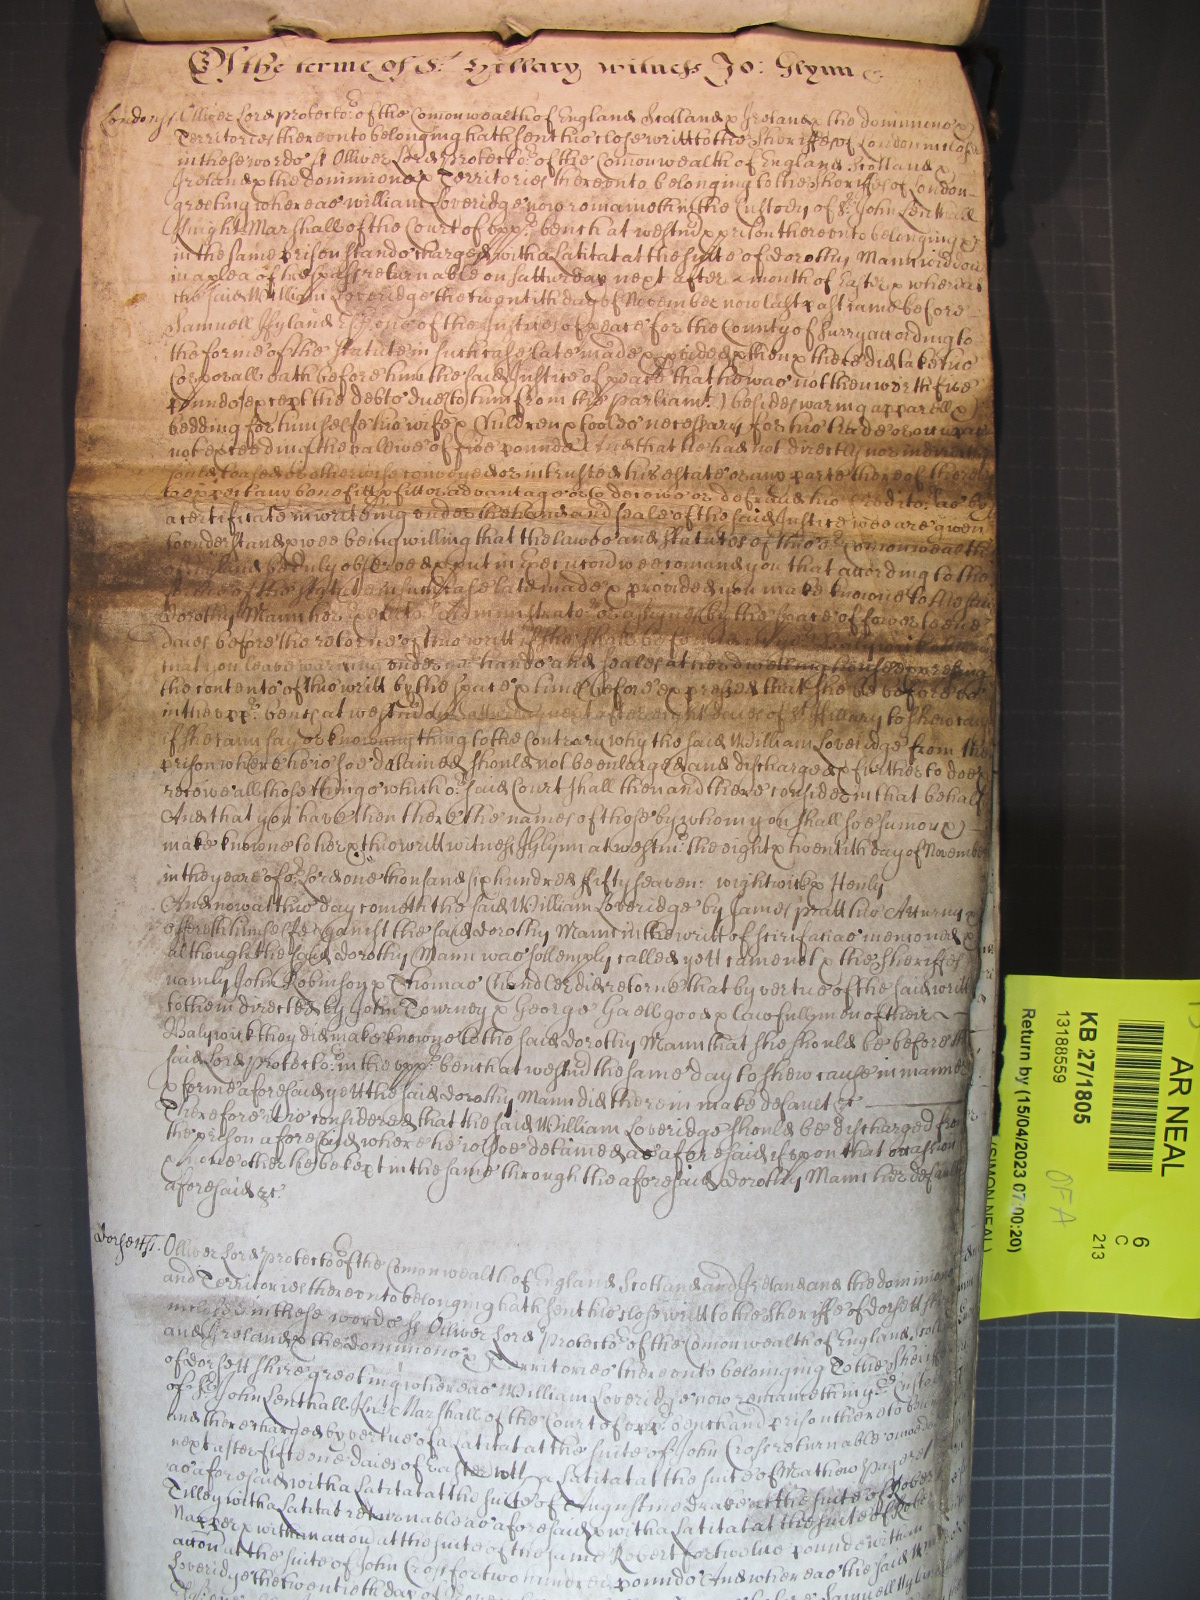 Of the terme of St. Hillary witness Jo: Glynn
London ss Olliver Lord protector of the Comonwealth of England Scotland & Ireland & the dominions &
Territories thereunto belonging hath sent his close writt to the Sheriffes of London
in these words ss Olliver Lord Protector of the Comonwealth of England Scotland &
Ireland & the dominions & Territories thereunto belonging to the Sheriffes of London
greeting whereas william Loveridge now remaineth in the Custody of Sr. John Lenthall
Knight Marshall of the Court of upp. bench at westm & prison thereunto belonging &
in the same prison stands charged with a latitat at the suite of dorothy Mann widdow
in a plea of trespas returnable on satturday next after a month of Easter & whereas
the said William Loveridge the twentith day of November now last past came before
Samuell Hyland Esq one of the Justices of peace for the County of Surry according to
the forme of the Statute in such case late made & provided & then & there did take his
Corporall oath before him the said Justice of peace that he was not then worth five
pounds (except the debts due to him from the parliamt.) besides waring apparell &
bedding for himselfe his wife & Children & tooles necessary for his trade or
not exceeding the vallue of five pounds And that he had not directly nor indirectly
sould leased or otherwise conveyed or intrusted his estate or any parte thereof thereby
to expect any benefitt & or advantage or to deceive or defraud his Creditors as by
a certificate in writeing under the hand and seale of the said Justice wee are given
to understand & wee being willing that the lawes and statutes of this or. Comonwealth
of England be duly observed & put in Execucon wee comand you that according to the
forme of the statute in such case late made & provided you make knowne to the said
dorothy Mann her Executors Administrators or assignes by the space of
daies before the retorne of this writt if she shall be found
that you leave warning under yor. hands and seales at her dwelling house expressing
the contents of this writt by the space & time before expressed that she be before us
in the upp. bench at westm day next after eight daies of St. Hillary to shew cause
if she cann say or know any thing to the Contrary why the said William Loveridge from the
prison where he is soe detained should not be enlarged and discharged & further to doe &
receive all those things which or. said Court shall then and there consider in that behalf
And that you have then there the names of those by whom you shall soe sumon &
make knowne to her & this writt witness J Glynn at westm. the eight & twentith day of November
in the yeare of or. Lord one thousand six hundred fifty seaven: wightwick & Henly
And now at this day cometh the said William Loveridge by James pratt his Atturny &
offereth himselfe against the said dorothy Mann in the writt of scire facias menconed &
although the said dorothy Mann was sollemply called yett came not & the Sheriffes
namly John Robinson & Thomas Chandler did retorne that by vertue of the said writt
to them directed by John Towney & George Haellgood & lawfull men of their
Balywick they did make knowne to the said dorothy Mann that she should be before the
said Lord Protector. in the upp. bench at westm the same day to shew cause in manner
& forme aforesaid yett the said dorothy Mann did therein make default &c
Therefore it is considered that the said William Loveridge should be discharged from
the prison aforesaid where he is soe detained as aforesaid if upon that occasion
& none other he be kept in the same through the aforesaid dorothy Mann her default
aforesaid &c.
Dorsett ss. Olliver Lord protector of the Comonwealth of England Scotland and Ireland and the dominions
and Territories thereonto belonging hath sent his close writt to the sheriffe of dorsett shire
inclosed in these words ss Olliver Lord Protector of the Comonwealth of England Scotland
and Ireland & the dominions & Territories thereonto belonging To the Sheriffe
of dorsett shire greeting whereas William Loveridge now remaineth in ye Custody
of Sr. John Lenthall Knt. Marshall of the Court of upp. bench and prison thereto belonging
and there charged by vertue of a Latitat at the suite of John Cross returnable on wednesday
next after fifteene daies of Easter with a Latitat at the suite of Mathew
as aforesaid with a Latitat at the suite of Augustine Drake at the suite of Robert
Tilley with a Latitat returnable as aforesaid & with a Latitat at the suite of
Napper & with an accon at the suite of the same Robert for twelve pounds with an
accon at the suite of John Cross for two hundred pounds And whereas the said William
Loveridge the twentieth day of
AR NEAL
6
C
213
KB 27/1805
13188559
OFA
Return by (15/04/2023 07:00:20)
(SIMON NEAL)